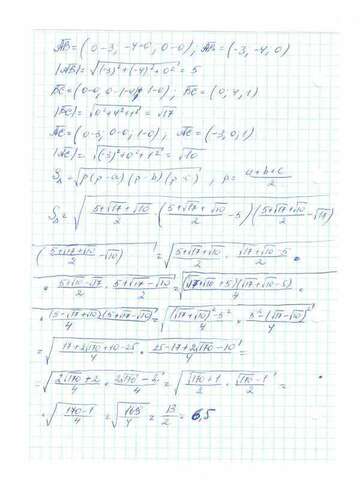 AB = (0-3, -4-0, 0-0), AB = (-3, -4, 0)
|AB| = √((-3)²+(-4)²+0²) = 5
BC = (0-0, 0-(-4), 1-0), BC = (0, 4, 1)
|BC| = √(0²+4²+1²) = √17
AC = (0-3, 0-0, 1-0), AC = (-3, 0, 1)
|AC| = √((-3)²+0²+1²) = √10
S△ = √(p(p-a)(p-b)(p-c)), p = (a+b+c)/2
S△ = √((5+√17+√10)/2 · ((5+√17+√10)/2 - 5)((5+√17+√10)/2 - √17)
((5+√17+√10)/2 - √10)) = √((5+√17+√10)/2 · (√17+√10-5)/2 ·
· (5+√10-√17)/2 · (5+√17-√10)/2) = √((√17+√10+5)(√17+√10-5)/4 ·
· (5-√17+√10)(5+√17-√10)/4) = √(((√17+√10)²-5²)/4 · (5²-(√17-√10)²)/4) =
= √((17+2√170+10-25)/4 · (25-17+2√170-10)/4) =
= √((2√170+2)/4 · (2√170-2)/4) = √((√170+1)/2 · (√170-1)/2) =
= √((170-1)/4) = √(169/4) = 13/2 = 6,5